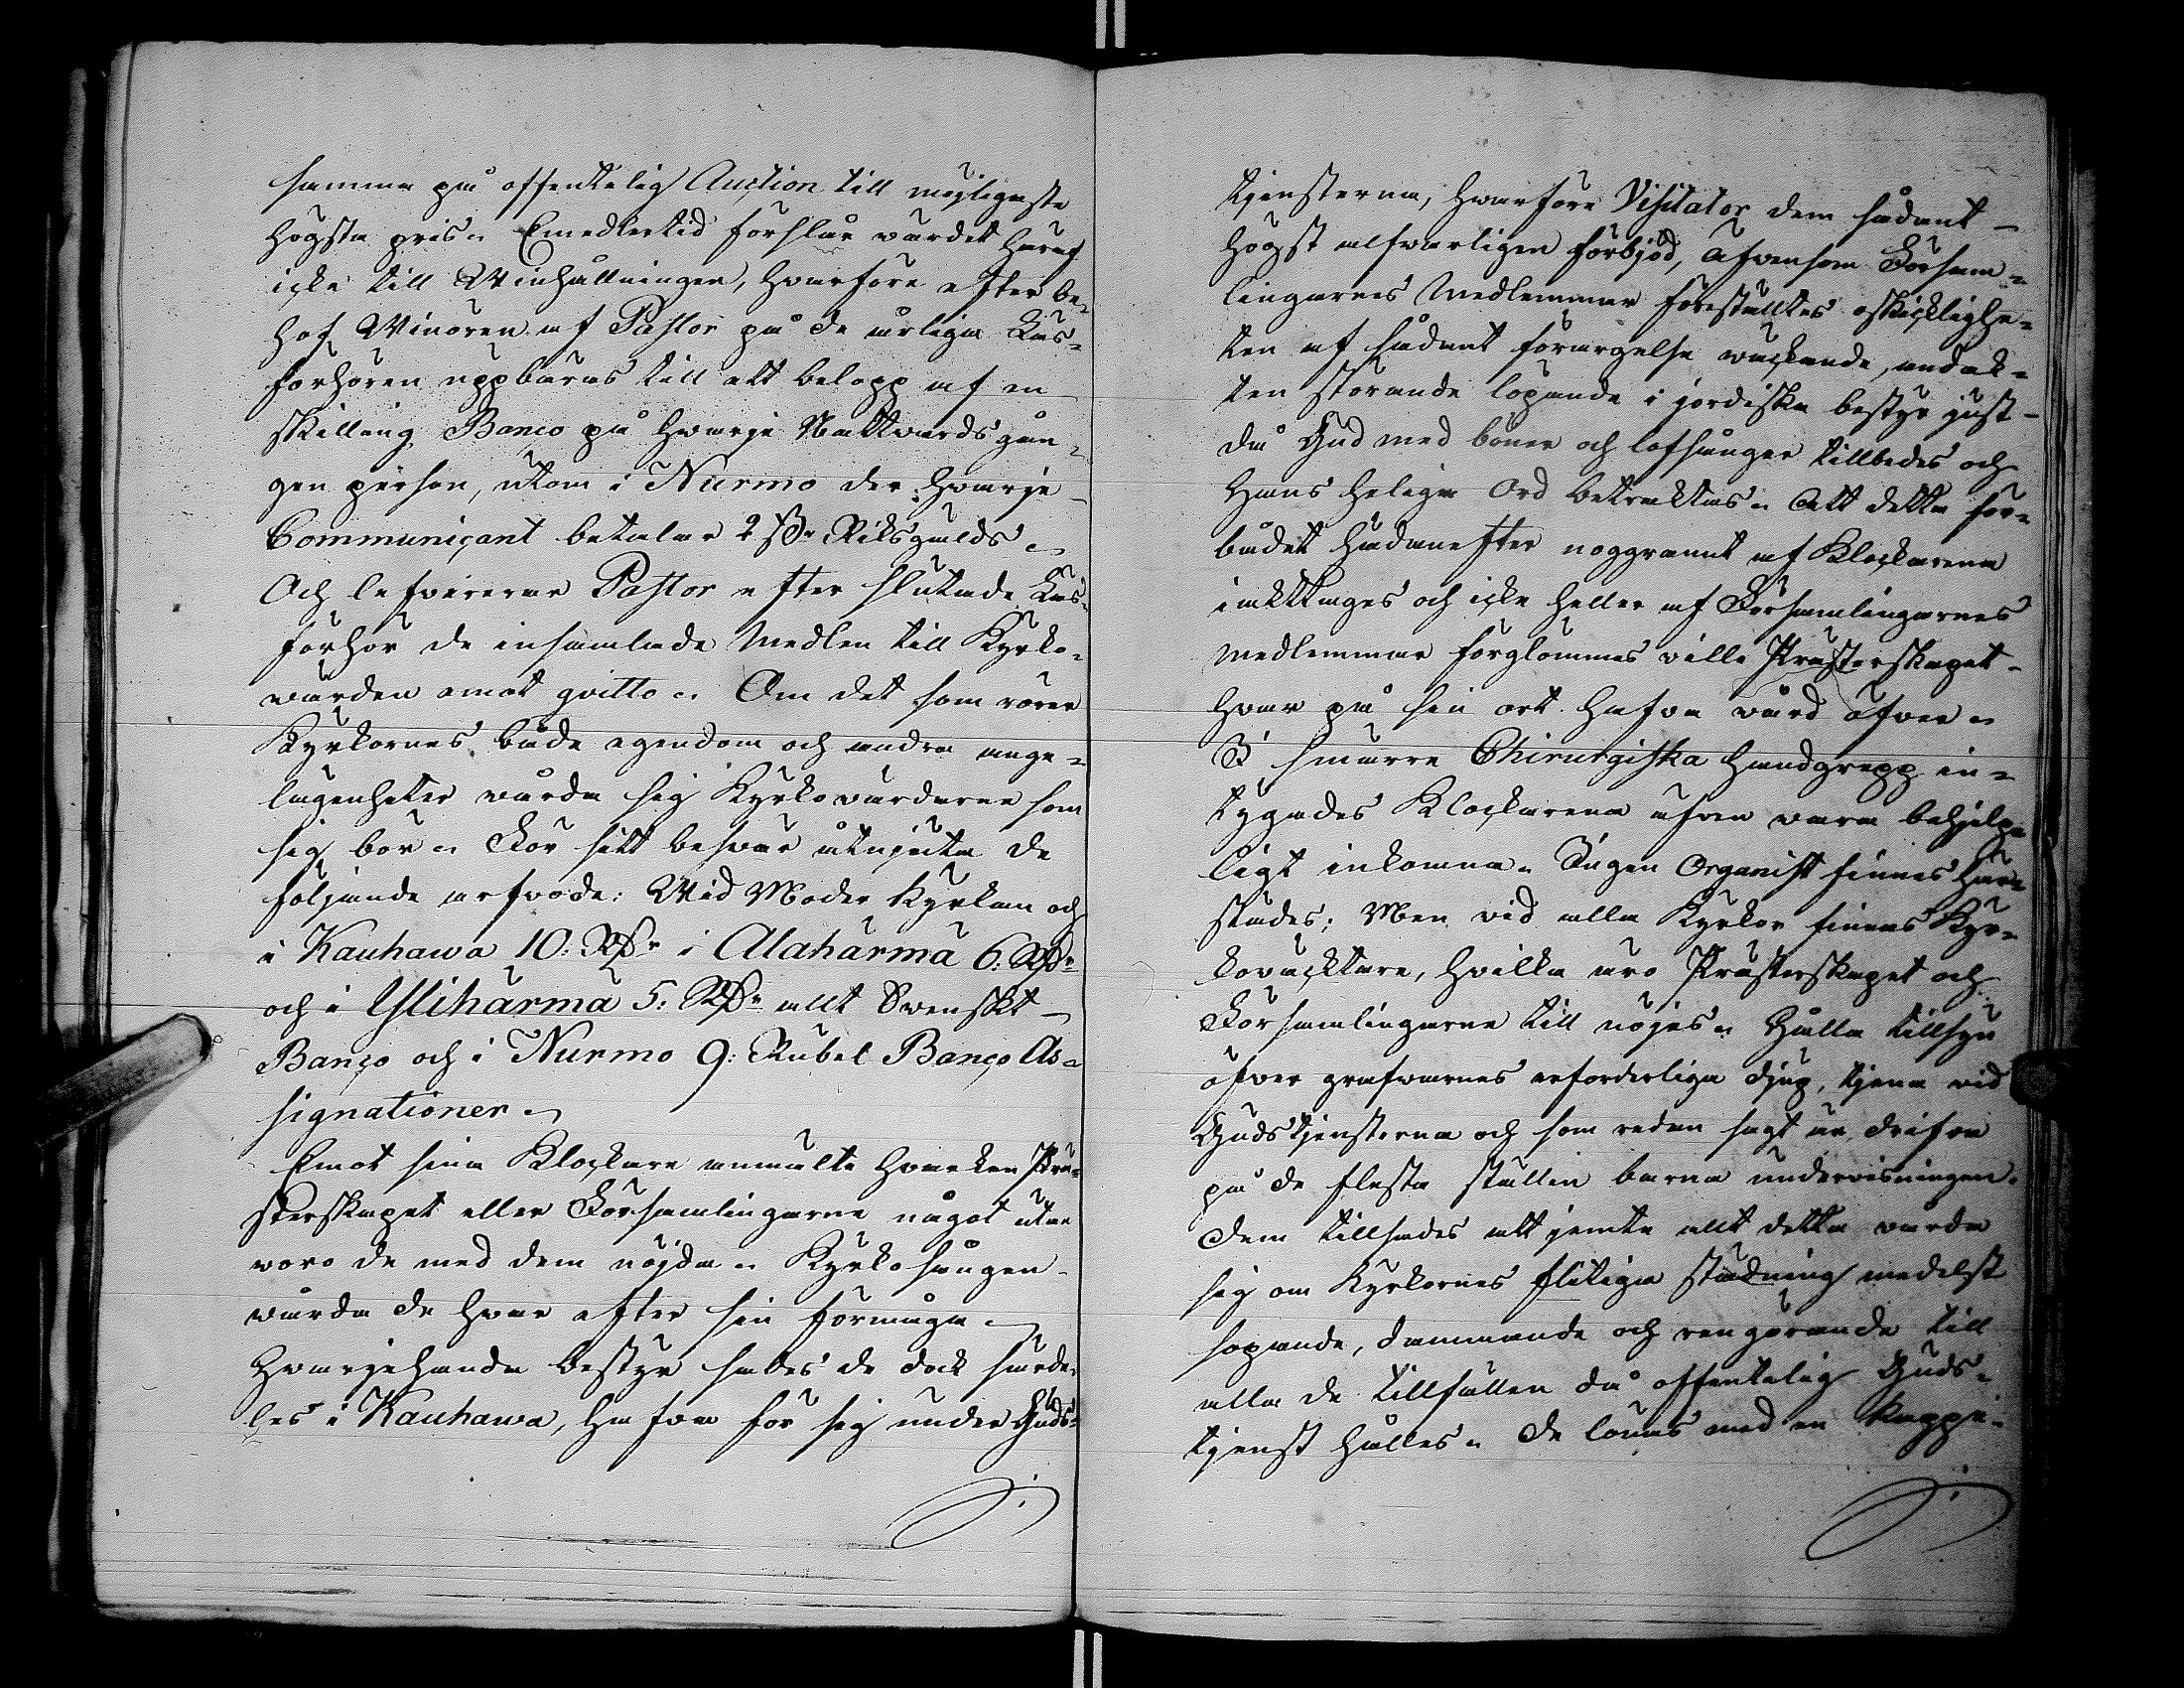 samma på offentelig Auction till möjeligaste
högsta pris. Emedlertid förslår wärdet häraf
icke till Winhållningen, hvarföre efter be-
hof Winören af Pastor på de årliga Läs-
förhören uppbäras till ett belopp af en
skilling Banco på hvarje Nattvards gån-
gen person, utom i Nurmo der hvarje
Communicant betalar 2 sk. Riksgälds.
Och lefvererar Pastor efter slutade Läs-
förhör de insamlade Medlen till Kyrko-
wärden emot qvitto. Om det som rörer
Kyrkornes både egendom och andra ange-
lägenheter vårda sig Kyrkovärdarne som
sig bör. För sitt besvär åtnjuta de
följande arfvode: Wid Moder Kyrkan och
i Kauhawa 10: Rdr i Alahärmä 6: Rdr
och i Ylihärmä 5: Rdr allt Swenskt
Banco och i Nurmo 9: Rubel Banco As-
signationer.
Emot sina Klockare anmälte hvarken Prä-
sterskapet eller Församlingarne något utan
voro de med dem nöjda. Kyrkosången
vårda de hvar efter sin förmåga.
Hvarjehanda bestyr sades de dock särde-
les i Kauhawa, hafva för sig under Guds-
tjensterna, hvarföre Visitator dem sådant
högst alfvarligen förbjöd, äfvensom Försam-
lingarnes Medlemmar föreställtes oskicklighe-
ten af sådant förargelse väckande, andak-
ten störande löpande i jordiska bestyr just
då Gud med böner och lofsånger tillbedes och
Hans heliga Ord betraktas. Att detta för-
budet hädanefter noggrannt af Klockarena
iakttages och icke heller af Församlingarnes
medlemmar förglömmes ville Prästerskapet
hvar på sin ort hafva vård öfver.
I smärre Chirurgiska handgrepp in-
tygades Klockarena äfven vara behjelpe-
ligt inkomna. Ingen Organist finnes här-
städes; Men vid alla Kyrkor finnas Kyr-
kovächtare, hvilka äro Prästerskapet och
Församlingarne till nöjes. Hålla tillsyn
öfver grafvarnes erforderliga djup, tjena vid
Gudstjensterna och som redan sagt är, drifva
på de flesta ställen barna undervisningen.
Dem tillsades att jemte allt detta vårda
sig om Kyrkornes flitiga städning medelst
sopande, dammande och rengörande till
alla de tillfällen då offentelig Guds-
tjenst hålles. De lönas med en kappe